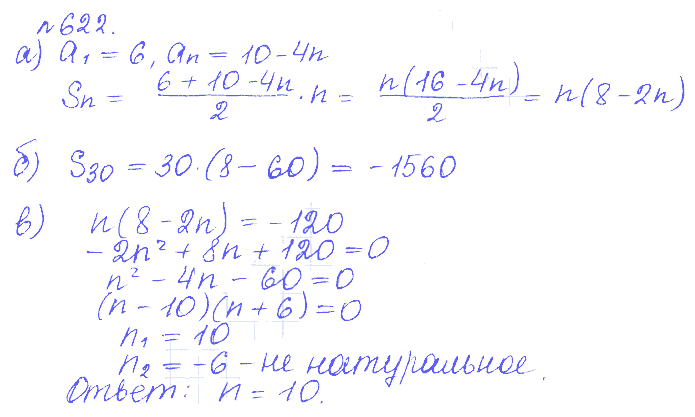 №622.
а) a₁ = 6, aₙ = 10 - 4n
Sₙ = (6 + 10 - 4n)/2 · n = n(16 - 4n)/2 = n(8 - 2n)
б) S₃₀ = 30·(8 - 60) = -1560
в) n(8 - 2n) = -120
-2n² + 8n + 120 = 0
n² - 4n - 60 = 0
(n - 10)(n + 6) = 0
n₁ = 10
n₂ = -6 - не натуральное.
Ответ: n = 10.